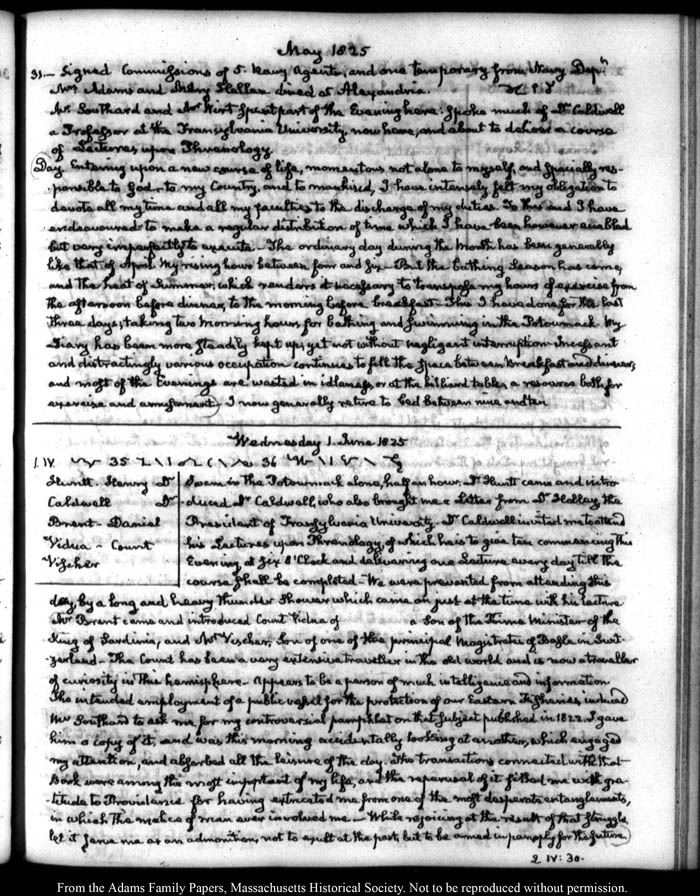 May 1825
31. — Signed Commissions of 5. Navy Agents, and one temporary from Navy Dept
Mrs Adams and Mary Hellen dined at Alexandria.
Mr Southard and Mr Wirt spent part of the Evening here. Spoke much of Dr Caldwell
a Professor at the Transylvania University, now here, and about to deliver a course
of Lectures upon Phrenology.
Day. Entering upon a new course of life, momentous not alone to myself, and specially res-
ponsible to God, to my Country, and to mankind, I have intensely felt my obligation to
devote all my time and all my faculties to the discharge of my duties. To this end I have
endeavoured to make a regular distribution of time which I have been however enabled
but very imperfectly to execute — The ordinary day during the Month has been generally
like that of April. My rising hour between four and six — But the bathing season has come,
and the heat of Summer, which renders it necessary to transpose my hours of exercise from
the afternoon before dinner, to the morning before breakfast — This I have done for the last
three days; taking two Morning hours for bathing and swimming in the Potowmack. My
Diary has been more steadily kept up; yet not without negligent interruption. Incessant
and distractingly various occupation continues to fill the space between breakfast and dinner,
and most of the Evenings are wasted in idleness, or at the billiard table, a resource both for
exercise and amusement. I now generally retire to bed between nine and ten.
Wednesday 1. June 1825
1. IV. 35 36
Huntt. Henry Dr
Caldwell Dr
Brent — Daniel
Vidua — Count
Vischer
Swam in the Potowmack alone, half an hour. Dr Huntt came and intro-
duced Dr Caldwell, who also brought me a Letter from Dr Holley, the
President of Transylvania University. Dr Caldwell invited me to attend
his Lectures upon Phrenology, of which he is to give ten commencing this
Evening, at six O'Clock and delivering one Lecture every day till the
course shall be completed — We were prevented from attending this
day, by a long and heavy thunder shower which came on just at the time
Mr Brent came and introduced Count Vidua of a Son of the Prime Minister of the
King of Sardinia, and Mr Vischer, Son of one of the principal Magistrates of Basle in Swit-
zerland — The Count has been a very extensive traveller in the old world and is now a traveller
of curiosity in this hemisphere — Appears to be a person of much intelligence and information
The intended employment of a public vessel for the protection of our Eastern Fisheries induced
Mr Southard to ask me for my controversial pamphlet on that subject published in 1822. I gave
him a copy of it, and was this morning accidentally looking at another, which engaged
my attention, and absorbed all the leisure of the day. The transactions connected with that
Book were among the most important of my life, and the reperusal of it filled me with gra-
titude to Providence for having extricated me from one of the most desperate entanglements,
in which the malice of man ever involved me — While rejoicing at the result of that struggle
let it serve me as an admonition, not to exult at the past, but to be armed in panoply for the future.
2 IV: 30.
From the Adams Family Papers, Massachusetts Historical Society. Not to be reproduced without permission.